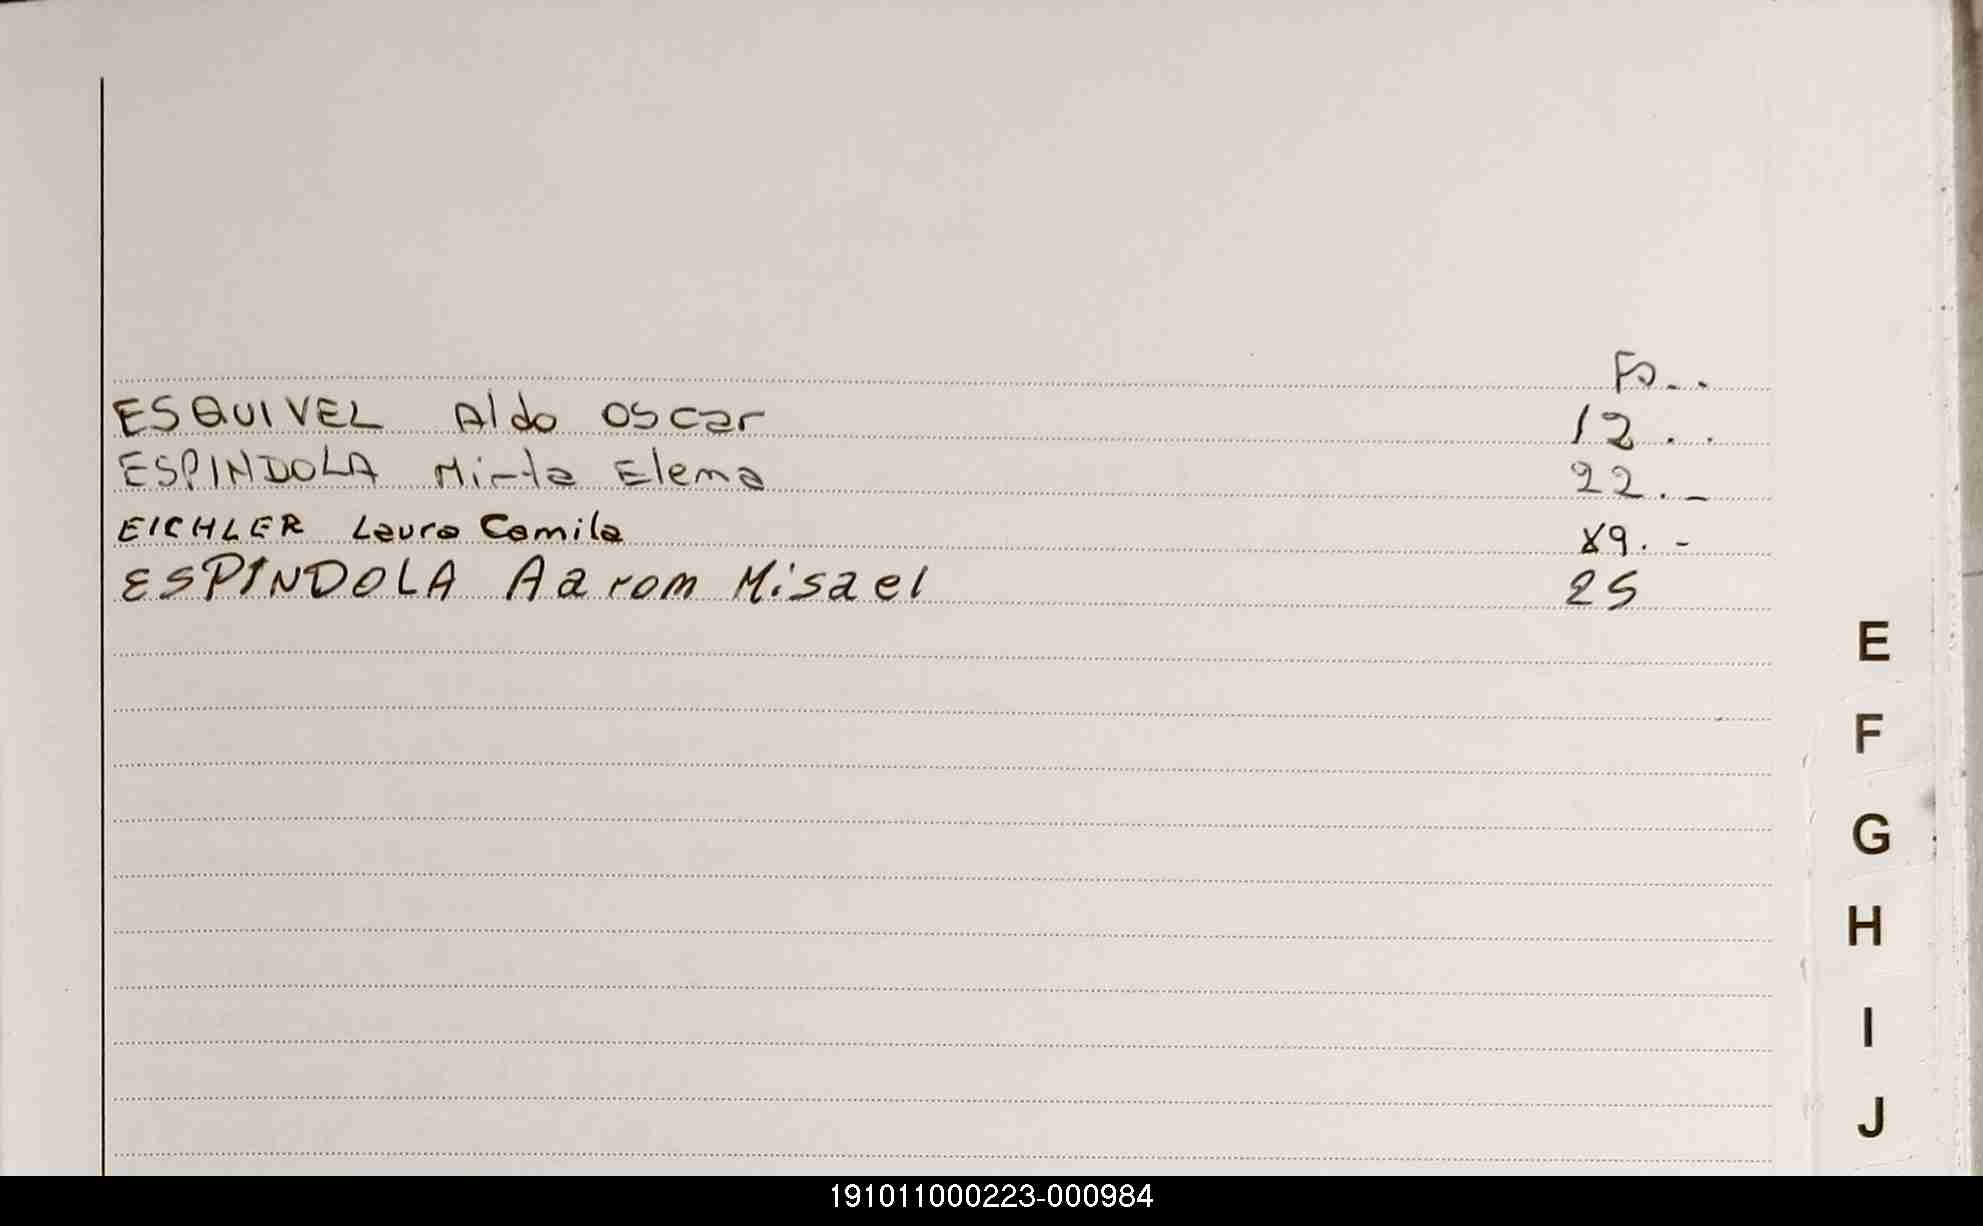 Fo..
ESQUIVEL Aldo Oscar 12..
ESPINDOLA Mirta Elena 22.-
EICHLER Laura Camila 89.-
ESPINDOLA Aarom Misael 25
E
F
G
H
I
J
191011000223-000984